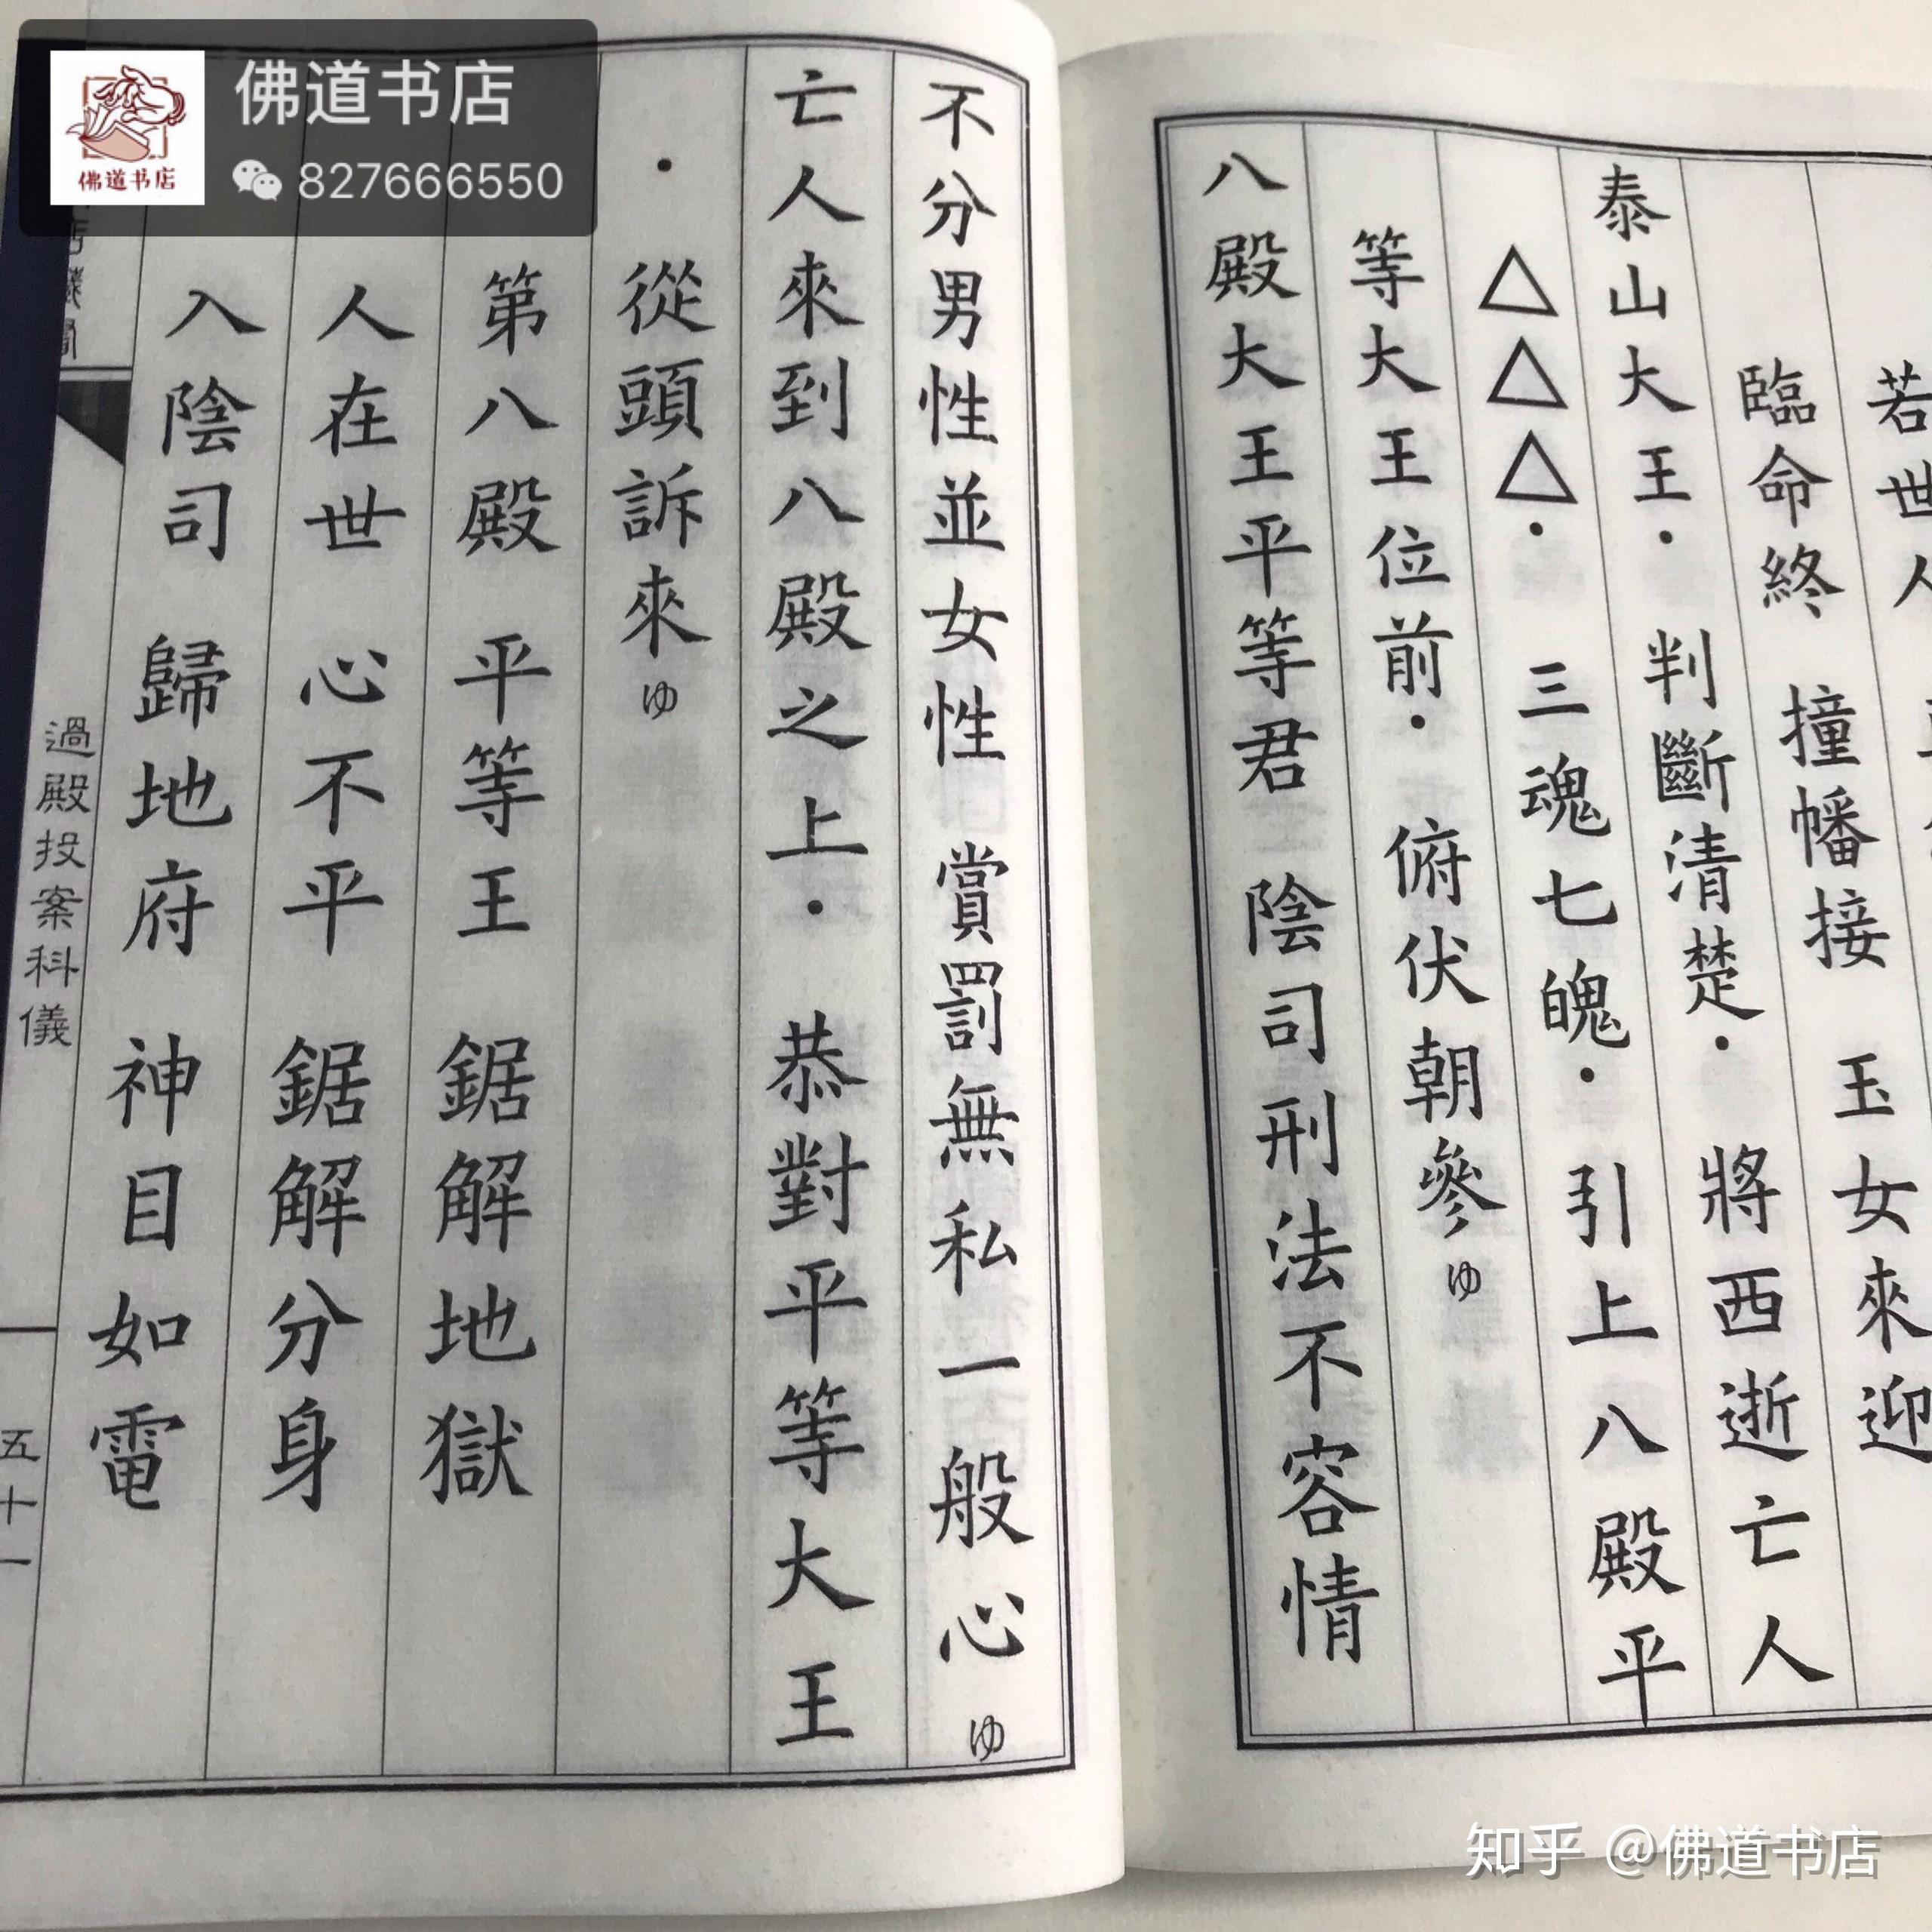 佛道书店
827666550
佛道书店
若世人
玉女來迎
臨命終 撞幡接
泰山大王· 判斷清楚· 將西逝亡人
△△△· 三魂七魄· 引上八殿平
等大王位前· 俯伏朝參ゆ
八殿大王平等君 陰司刑法不容情
不分男性並女性 賞罰無私一般心ゆ
亡人來到八殿之上· 恭對平等大王
· 從頭訴來ゆ
第八殿 平等王 鋸解地獄
人在世 心不平 鋸解分身
入陰司 歸地府 神目如電
過殿投案科儀
五十一
知乎 @佛道书店